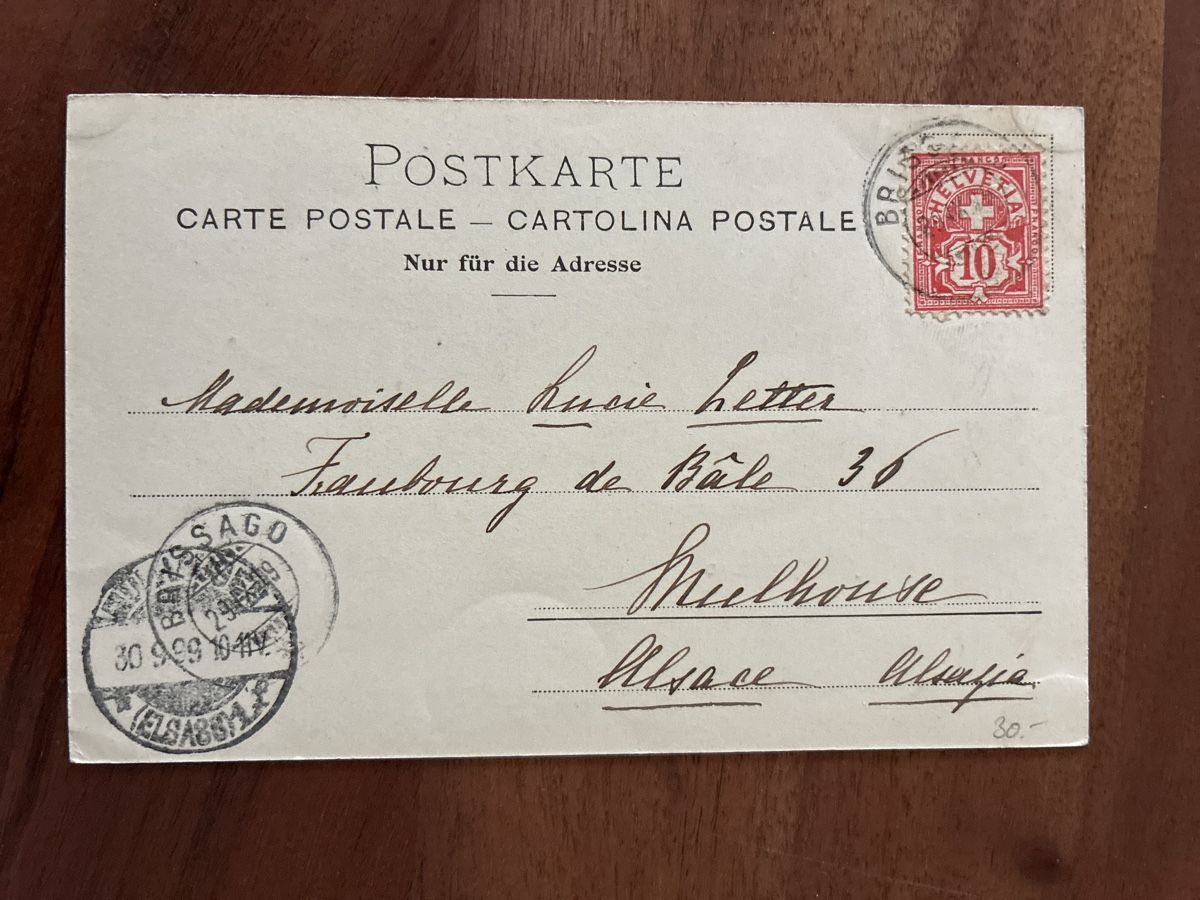 POSTKARTE
CARTE POSTALE — CARTOLINA POSTALE
Nur für die Adresse
FRANCO
HELVETIA
10
Mademoiselle Lucie Zetter
Faubourg de Bâle 36
Mulhouse
Alsace
BRISSAGO
30 9.99 10-11V.
(ELSASS)
30.-